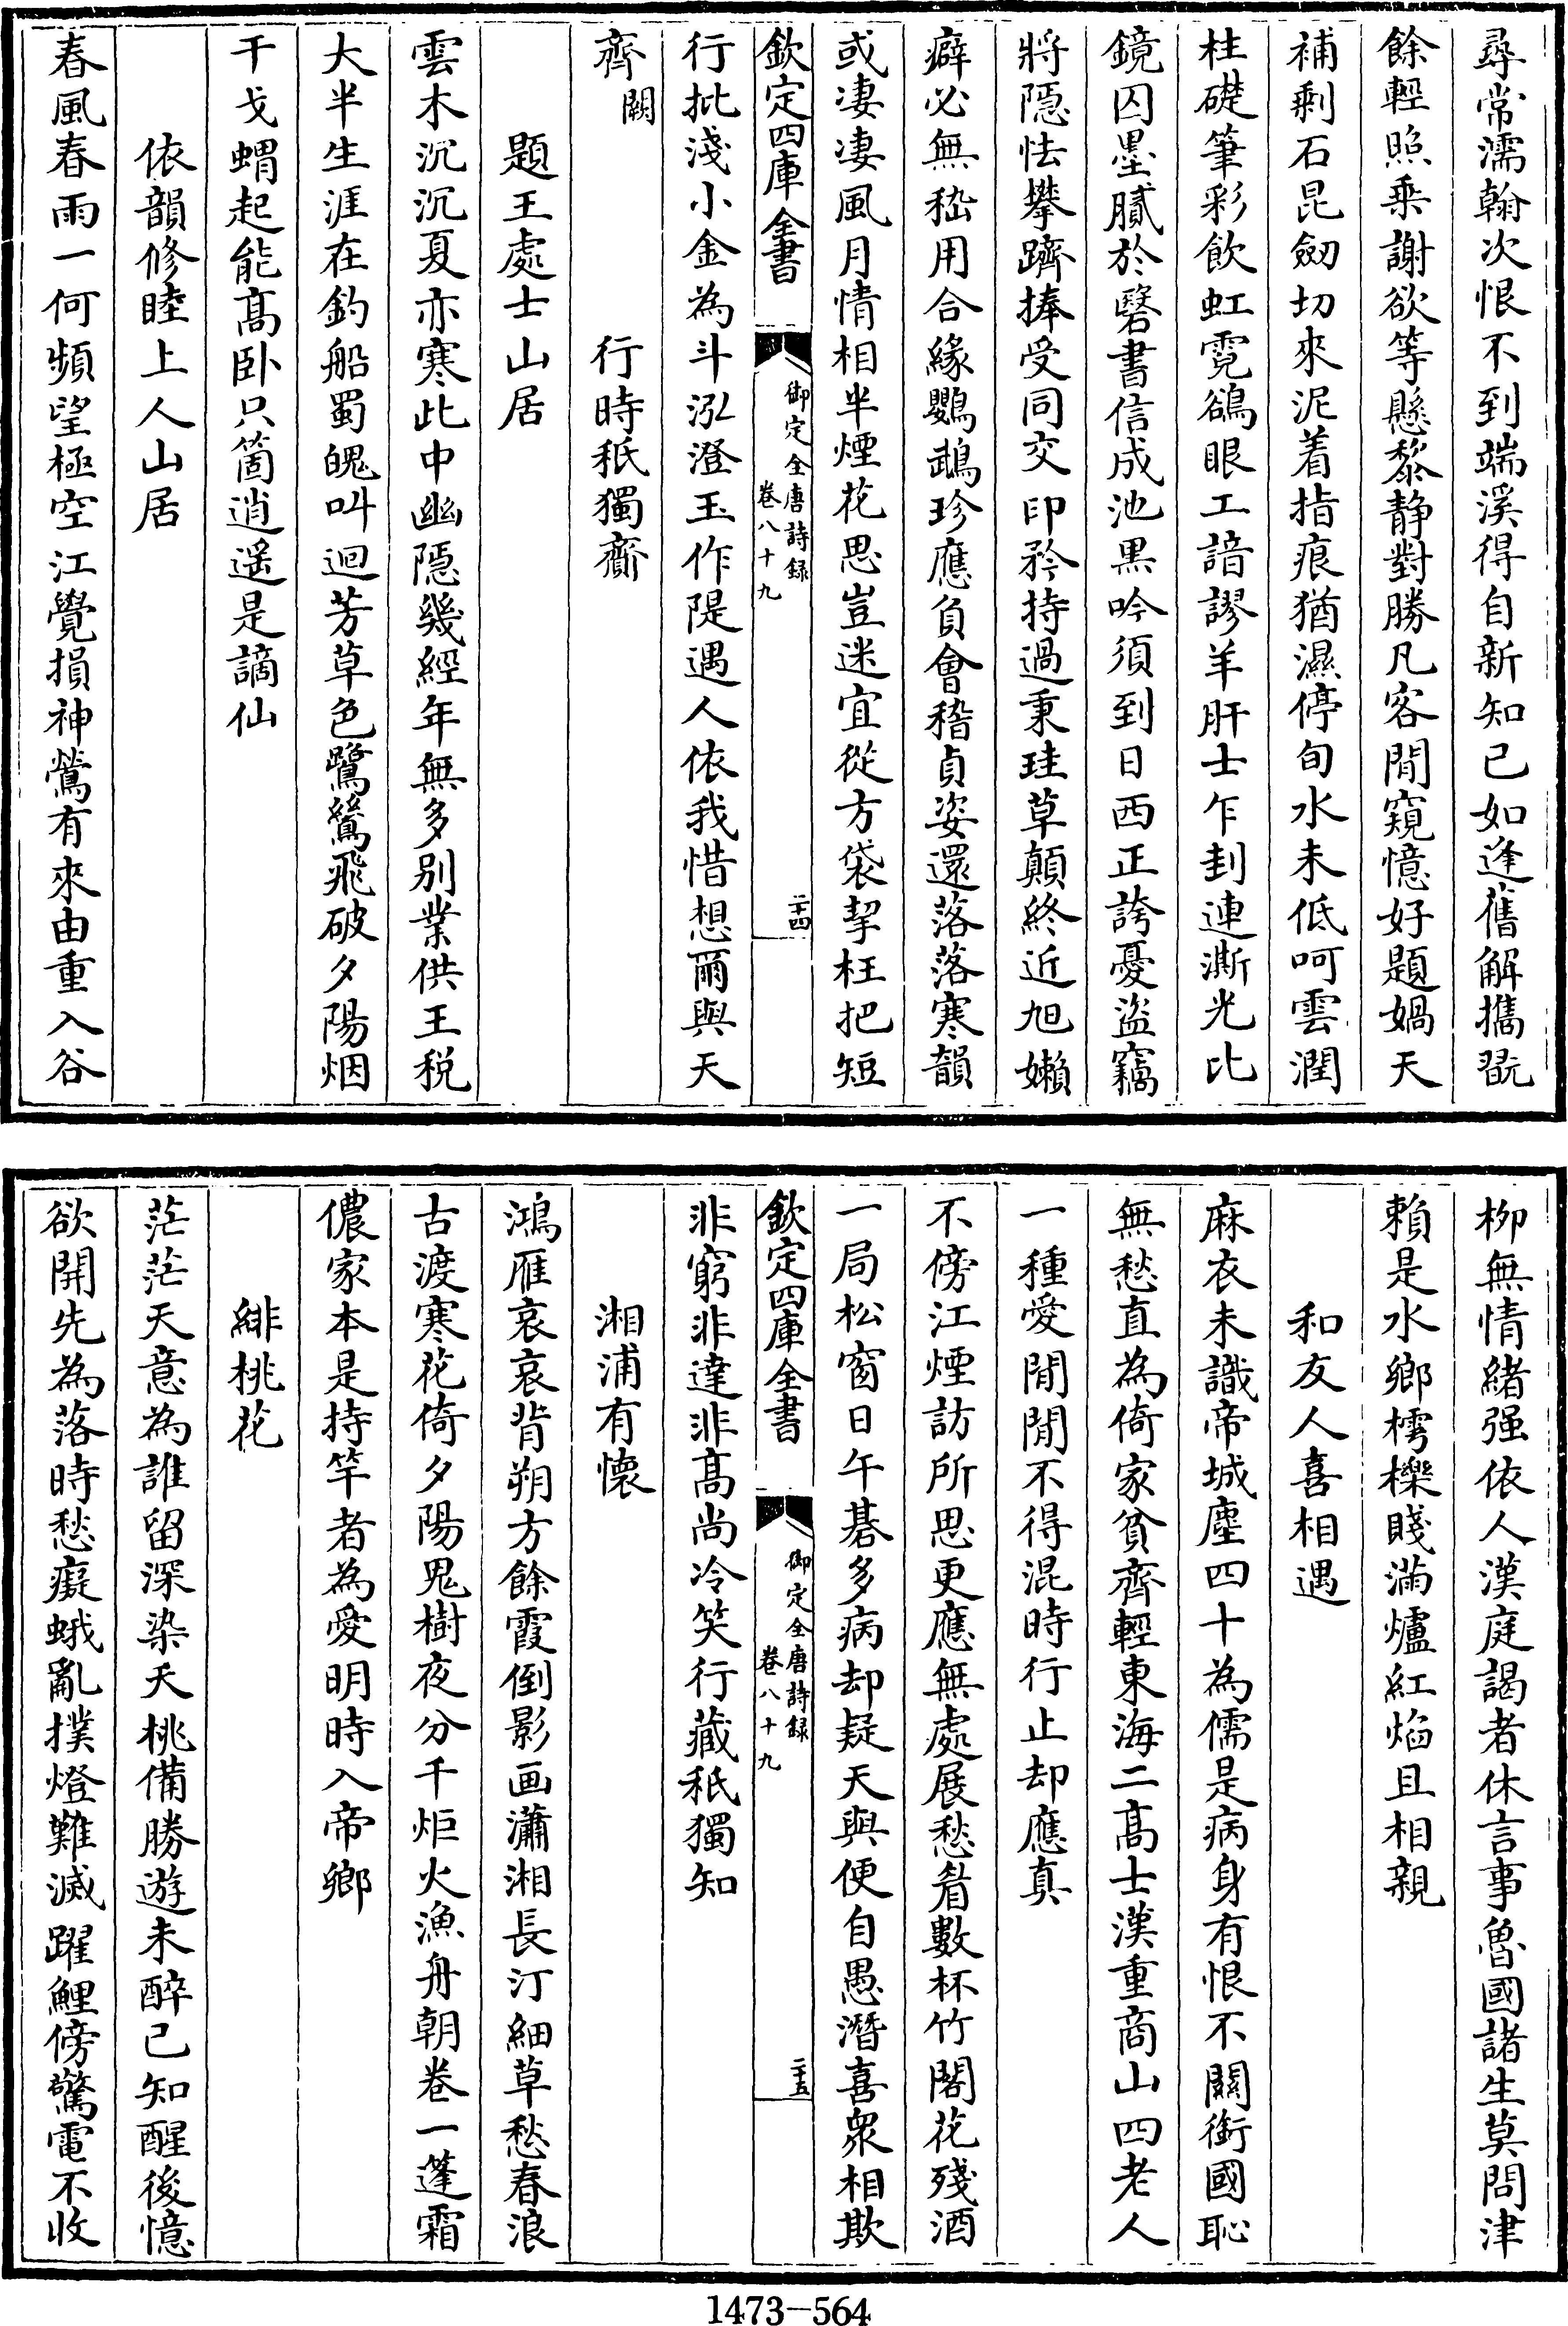 尋常濡翰次恨不到端溪得自新知已如逢舊解攜翫
餘輕照乘謝欲等懸黎静對勝凡客閒窺憶好題媧天
補剩石昆劒切來泥着指痕猶濕停旬水未低呵雲潤
柱礎筆彩飲虹霓鴝眼工諳謬羊肝士乍刲連澌光比
鏡囚墨膩於瑿書信成池黒吟須到日西正誇憂盜竊
將隱怯攀躋捧受同交印矜持過秉珪草顛終近旭嬾
癖必無嵇用合緣鸚鵡珍應負會稽貞姿還落落寒韻
或凄凄風月情相半煙花思豈迷宜從方袋挈枉把短
欽定四庫全書
御定全唐詩録
卷八十九
二十四
行批淺小金為斗泓澄玉作隄遇人依我惜想爾與天
齊闕 行時秖獨齎
題王處士山居
雲木沉沉夏亦寒此中幽隱幾經年無多别業供王税
大半生涯在釣船蜀魄叫迴芳草色鷺鷥飛破夕陽烟
干戈蝟起能髙卧只箇逍遥是謫仙
依韻修睦上人山居
春風春雨一何頻望極空江覺損神鶯有來由重入谷
柳無情緒强依人漢庭謁者休言事魯國諸生莫問津
賴是水鄉樗櫟賤滿爐紅焰且相親
和友人喜相遇
麻衣未識帝城塵四十為儒是病身有恨不闗銜國恥
無愁直為倚家貧齊輕東海二髙士漢重商山四老人
一種愛閒閒不得混時行止却應真
不傍江煙訪所思更應無處展愁眉數杯竹閣花殘酒
一局松窗日午碁多病却疑天與便自愚潛喜衆相欺
欽定四庫全書
御定全唐詩録
卷八十九
二十五
非窮非達非髙尚冷笑行藏秖獨知
湘浦有懷
鴻雁哀哀背朔方餘霞倒影画瀟湘長汀細草愁春浪
古渡寒花倚夕陽鬼樹夜分千炬火漁舟朝卷一蓬霜
儂家本是持竿者為愛明時入帝鄉
緋桃花
茫茫天意為誰留深染夭桃備勝遊未醉已知醒後憶
欲開先為落時愁癡蛾亂撲燈難滅躍鯉傍驚電不收
1473—564